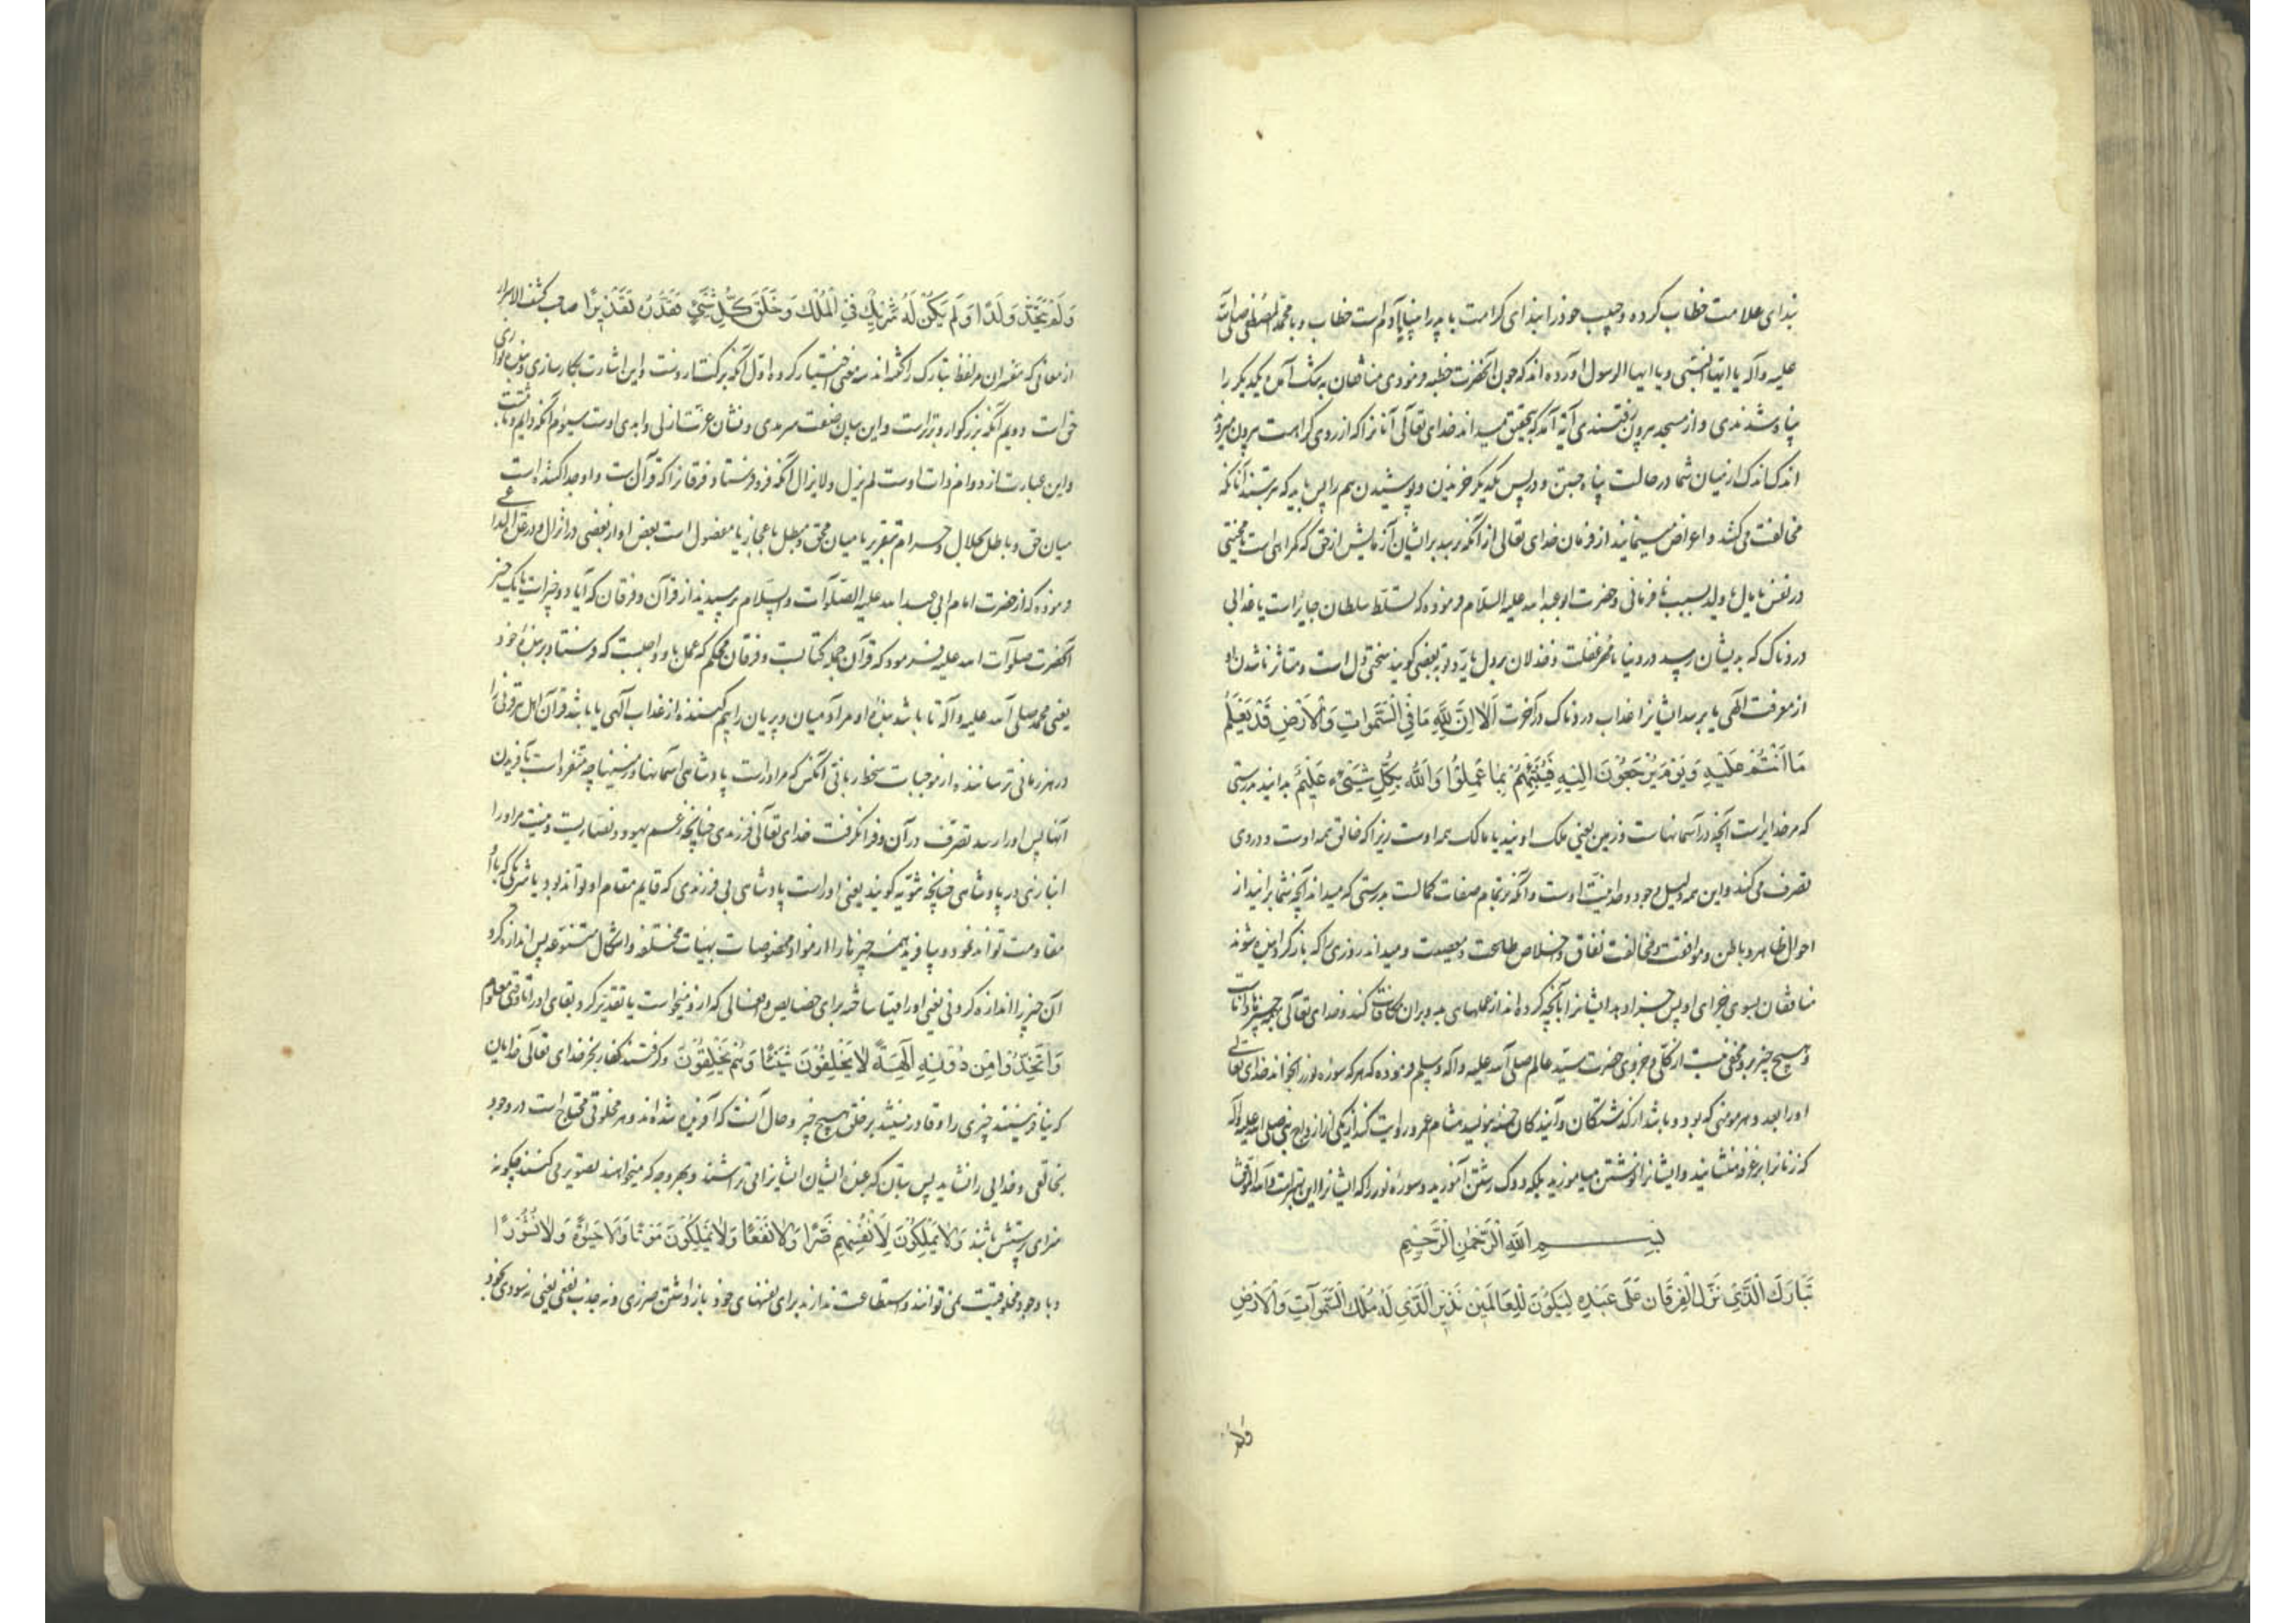 بندای علامت خطاب کرده و حبیب خود را بندای کرامت یا آدم است خطاب و یا محمد المصطفی صلی الله
علیه و آله یا ایها النبی و یا ایها الرسول آورده اند که چون آنحضرت خطبه فرمودی منافقان به تنگ آمده یکدیگر را
پناه شدندی و از مسجد بیرون رفتندی آیه آمد که بتحقیق میداند خدای تعالی آنانرا که از روی کراهت بیرون میروند
اندک اندک از میان شما در حالت پناه جستن و در پس یکدیگر خزیدن و پوشیدن هم را پس باید که بترسند آنانکه
مخالفت می کنند و اعراض مینمایند از فرمان خدای تعالی از آنکه برسد بر ایشان آزمایش از حق که گمراهی است یا محنتی
در نفس یا مال یا ولد بسبب نافرمانی و حضرت ابو عبدالله علیه السلام فرموده که تسلط سلطان جابر است یا عذابی
دردناک که بدیشان رسد در دنیا یا مهر غفلت و خذلان بر دل یا رد توبه بعضی گویند سختی دل است و متاثر ناشدن او
از معرفت الهی یا برسد ایشانرا عذاب دردناک در آخرت اَلَا اِنَّ لِلّٰهِ مَا فِی السَّمٰوَاتِ وَالْاَرْضِ قَدْ یَعْلَمُ
مَا اَنْتُمْ عَلَیْهِ وَیَوْمَ یُرْجَعُوْنَ اِلَیْهِ فَیُنَبِّئُهُمْ بِمَا عَمِلُوْا وَاللّٰهُ بِکُلِّ شَیْءٍ عَلِیْمٌ بدانید بدرستی
که مر خدایراست آنچه در آسمانهاست و زمین یعنی ملک اویند یا مالک همه اوست زیرا که خالق همه اوست و در وی
تصرف می کند و این همه دلیل وجود و وحدانیت اوست و آنکه بتمام صفات کمالست بدرستی که میداند آنچه شما برانید از
احوال ظاهر و باطن و موافقت و مخالفت نفاق و اخلاص طاعت و معصیت و میداند روزی را که باز گردانیده شوند
منافقان بسوی جزای او پس خبر دهد ایشانرا بآنچه کرده اند از عملهای بد و بران مکافات کند و خدای تعالی بهمه چیز داناست
و هیچ چیز برو مخفی نیست از کلی و جزوی حضرت سید عالم صلی الله علیه و آله و سلم فرموده که هر که سوره نور را بخواند خدای تعالی
او را بعدد هر مومنی که بود و باشد از گذشتگان و آیندگان حسنه بنویسد هشام عمرو روایت کند از یکی از ازواج نبی صلی الله علیه و آله
که زنانرا بر غرفه منشانید و ایشانرا نوشتن میاموزید بلکه دوک رشتن آموزید و سوره نور را که ایشانرا این بهتر است و الله الموفق
بِسْمِ اللّٰهِ الرَّحْمٰنِ الرَّحِیْمِ
تَبَارَكَ الَّذِیْ نَزَّلَ الْفُرْقَانَ عَلٰی عَبْدِهِ لِیَکُوْنَ لِلْعَالَمِیْنَ نَذِیْرًا الَّذِیْ لَهُ مُلْكُ السَّمٰوَاتِ وَالْاَرْضِ
ولم
وَلَمْ یَتَّخِذْ وَلَدًا وَلَمْ یَکُنْ لَهُ شَرِیْكٌ فِی الْمُلْكِ وَخَلَقَ کُلَّ شَیْءٍ فَقَدَّرَهُ تَقْدِیْرًا صاحب کشف الاسرار
از معانی که مفسران مر لفظ تبارک را گفته اند سه معنی اختیار کرده اول آنکه برکتها از وست و این اشارت بکارسازی و بنده نوازی
حق است دویم آنکه بزرگوار و برتر است و این بیان صفت سرمدی و نشان عزت ازلی و ابدی اوست سیوم آنکه دایم و ثابت
و این عبارت از دوام ذات اوست لم یزل و لا یزال آنکه فرو فرستاد فرقانرا که قرآنست و او جدا کننده است
میان حق و باطل بحلال و حرام بتقریر یا میان محق و مبطل باعجاز یا مفصول است بعض او از بعضی در انزال
فرموده که از حضرت امام ابی عبدالله علیه الصلوات والسلام پرسیدند از قرآن و فرقان که آیا دو چیزاست یا یک چیز
آنحضرت صلوات الله علیه فرمود که قرآن جمله کتابست و فرقان محکم که عمل باو واجبست که فرستاد بر بنده خود
یعنی محمد صلی الله علیه و آله تا باشد بنده او مر آدمیان و پریان را بیم کننده از عذاب الهی یا باشد قرآن اهل هر قرنی را
در هر زمانی ترساننده از موجبات سخط ربانی آنکس که مر اوراست پادشاهی آسمانها و زمینها چه متفرد است بآفریدن
آنها پس او را رسد تصرف در آن و فرا نگرفت خدای تعالی فرزندی چنانچه زعم یهود و نصاریست و نیست مر او را
انبازی در پادشاهی چنانچه ثنویه گویند یعنی اوراست پادشاهی بی فرزندی که قایم مقام او تواند بود یا شریکی که با او
مقاومت تواند نمود و بیافرید همه چیزها را از مواد مخصوصات بهیئات مختلفه و اشکال متنوعه پس اندازه کرد
آن چیز را اندازه کردنی یعنی او را مهیا ساخته برای خصایص و افعالی که از و میخواست یا تقدیر کرد بقای او را تا وقتی معلوم
وَاتَّخَذُوْا مِنْ دُوْنِهِ اٰلِهَةً لَا یَخْلُقُوْنَ شَیْئًا وَهُمْ یُخْلَقُوْنَ و گرفتند کفار بجز خدای تعالی خدایان
که نیافرینند چیزی را و قادر نیستند بر خلق هیچ چیز و حال آنست که آفریده شده اند و هر مخلوقی محتاج است در وجود
بخالقی و خدایی را نشاید پس بتان که عبده ایشان ایشانرا می تراشند و بهر وجه که میخواهند تصویر می کنند چگونه
سزای پرستش باشند وَلَا یَمْلِکُوْنَ لِاَنْفُسِهِمْ ضَرًّا وَلَا نَفْعًا وَلَا یَمْلِکُوْنَ مَوْتًا وَلَا حَیٰوةً وَلَا نُشُوْرًا
و با وجود مخلوقیت نمی توانند و استطاعت ندارند برای نفسهای خود باز داشتن ضرری و نه جذب نفعی یعنی نه سودی بخود